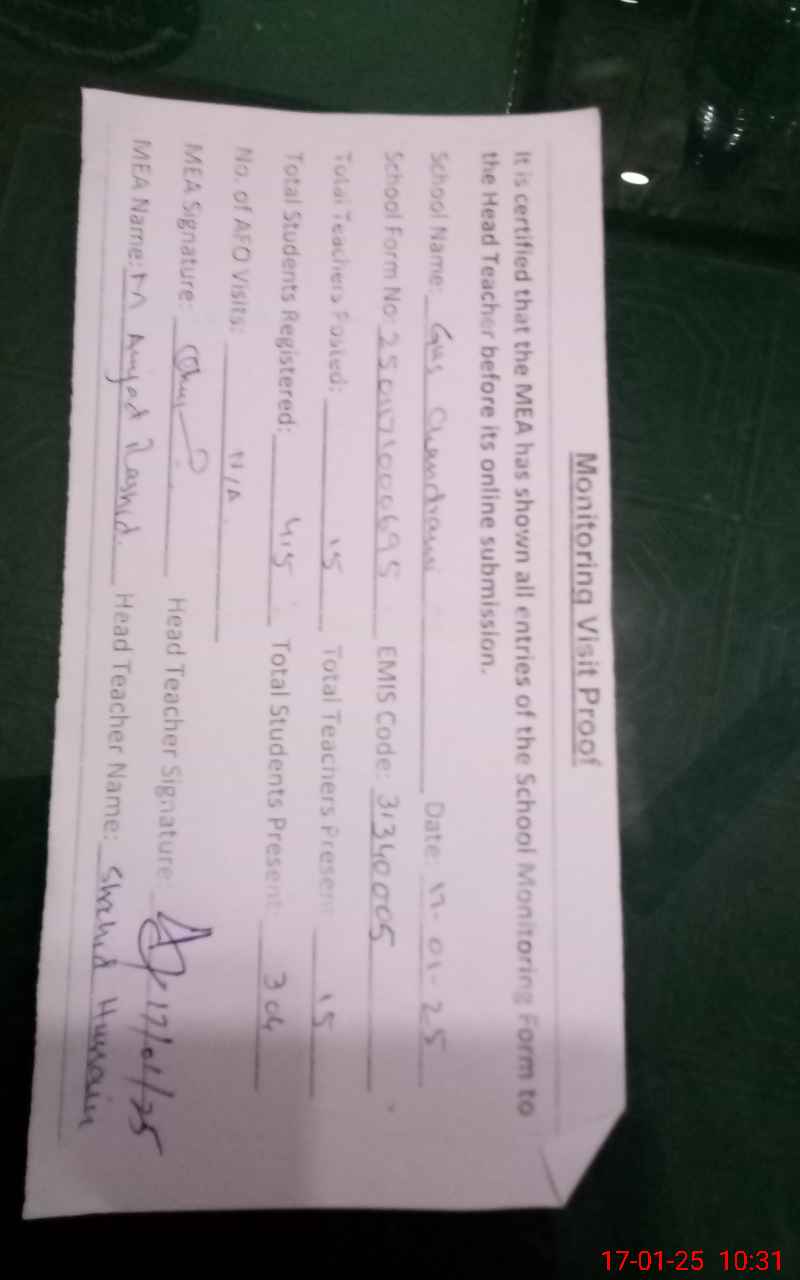 Monitoring Visit Proof
It is certified that the MEA has shown all entries of the School Monitoring Form to
the Head Teacher before its online submission.
School Name: Date: 17-01-25
School Form No: EMIS Code: 31340005
Total Teachers Posted: 15 Total Teachers Present: 15
Total Students Registered: 415 Total Students Present: 304
No. of AFO Visits: N/A
MEA Signature: Head Teacher Signature: 17/01/25
MEA Name: M Amjad Rashid. Head Teacher Name: Shahid Hussain
17-01-25 10:31